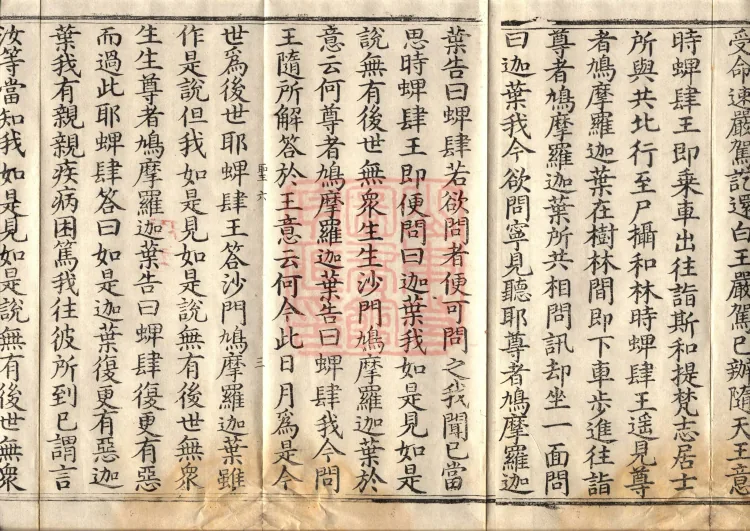 受命速嚴駕訖還白王嚴駕已辦隨天王意
時蜱肆王即乗車出往詣斯和提梵志居士
所與共北行至尸攝和林時蜱肆王遥見尊
者鳩摩羅迦葉在樹林間即下車歩進往詣
尊者鳩摩羅迦葉所共相問訊却坐一面問
曰迦葉我今欲問寧見聽耶尊者鳩摩羅迦
葉告曰蜱肆若欲問者便可問之我聞已當
思時蜱肆王即便問曰迦葉我如是見如是
說無有後世無衆生生沙門鳩摩羅迦葉於
意云何尊者鳩摩羅迦葉告曰蜱肆我今問
王隨所解答於王意云何今此日月爲是今
聖六 三
世爲後世耶蜱肆王答沙門鳩摩羅迦葉雖
作是說但我如是見如是說無有後世無衆
生生尊者鳩摩羅迦葉告曰蜱肆復更有惡
而過此耶蜱肆答曰如是迦葉復更有惡迦
葉我有親親疾病困篤我往彼所到已謂言
汝等當知我如是見如是說無有後世無衆